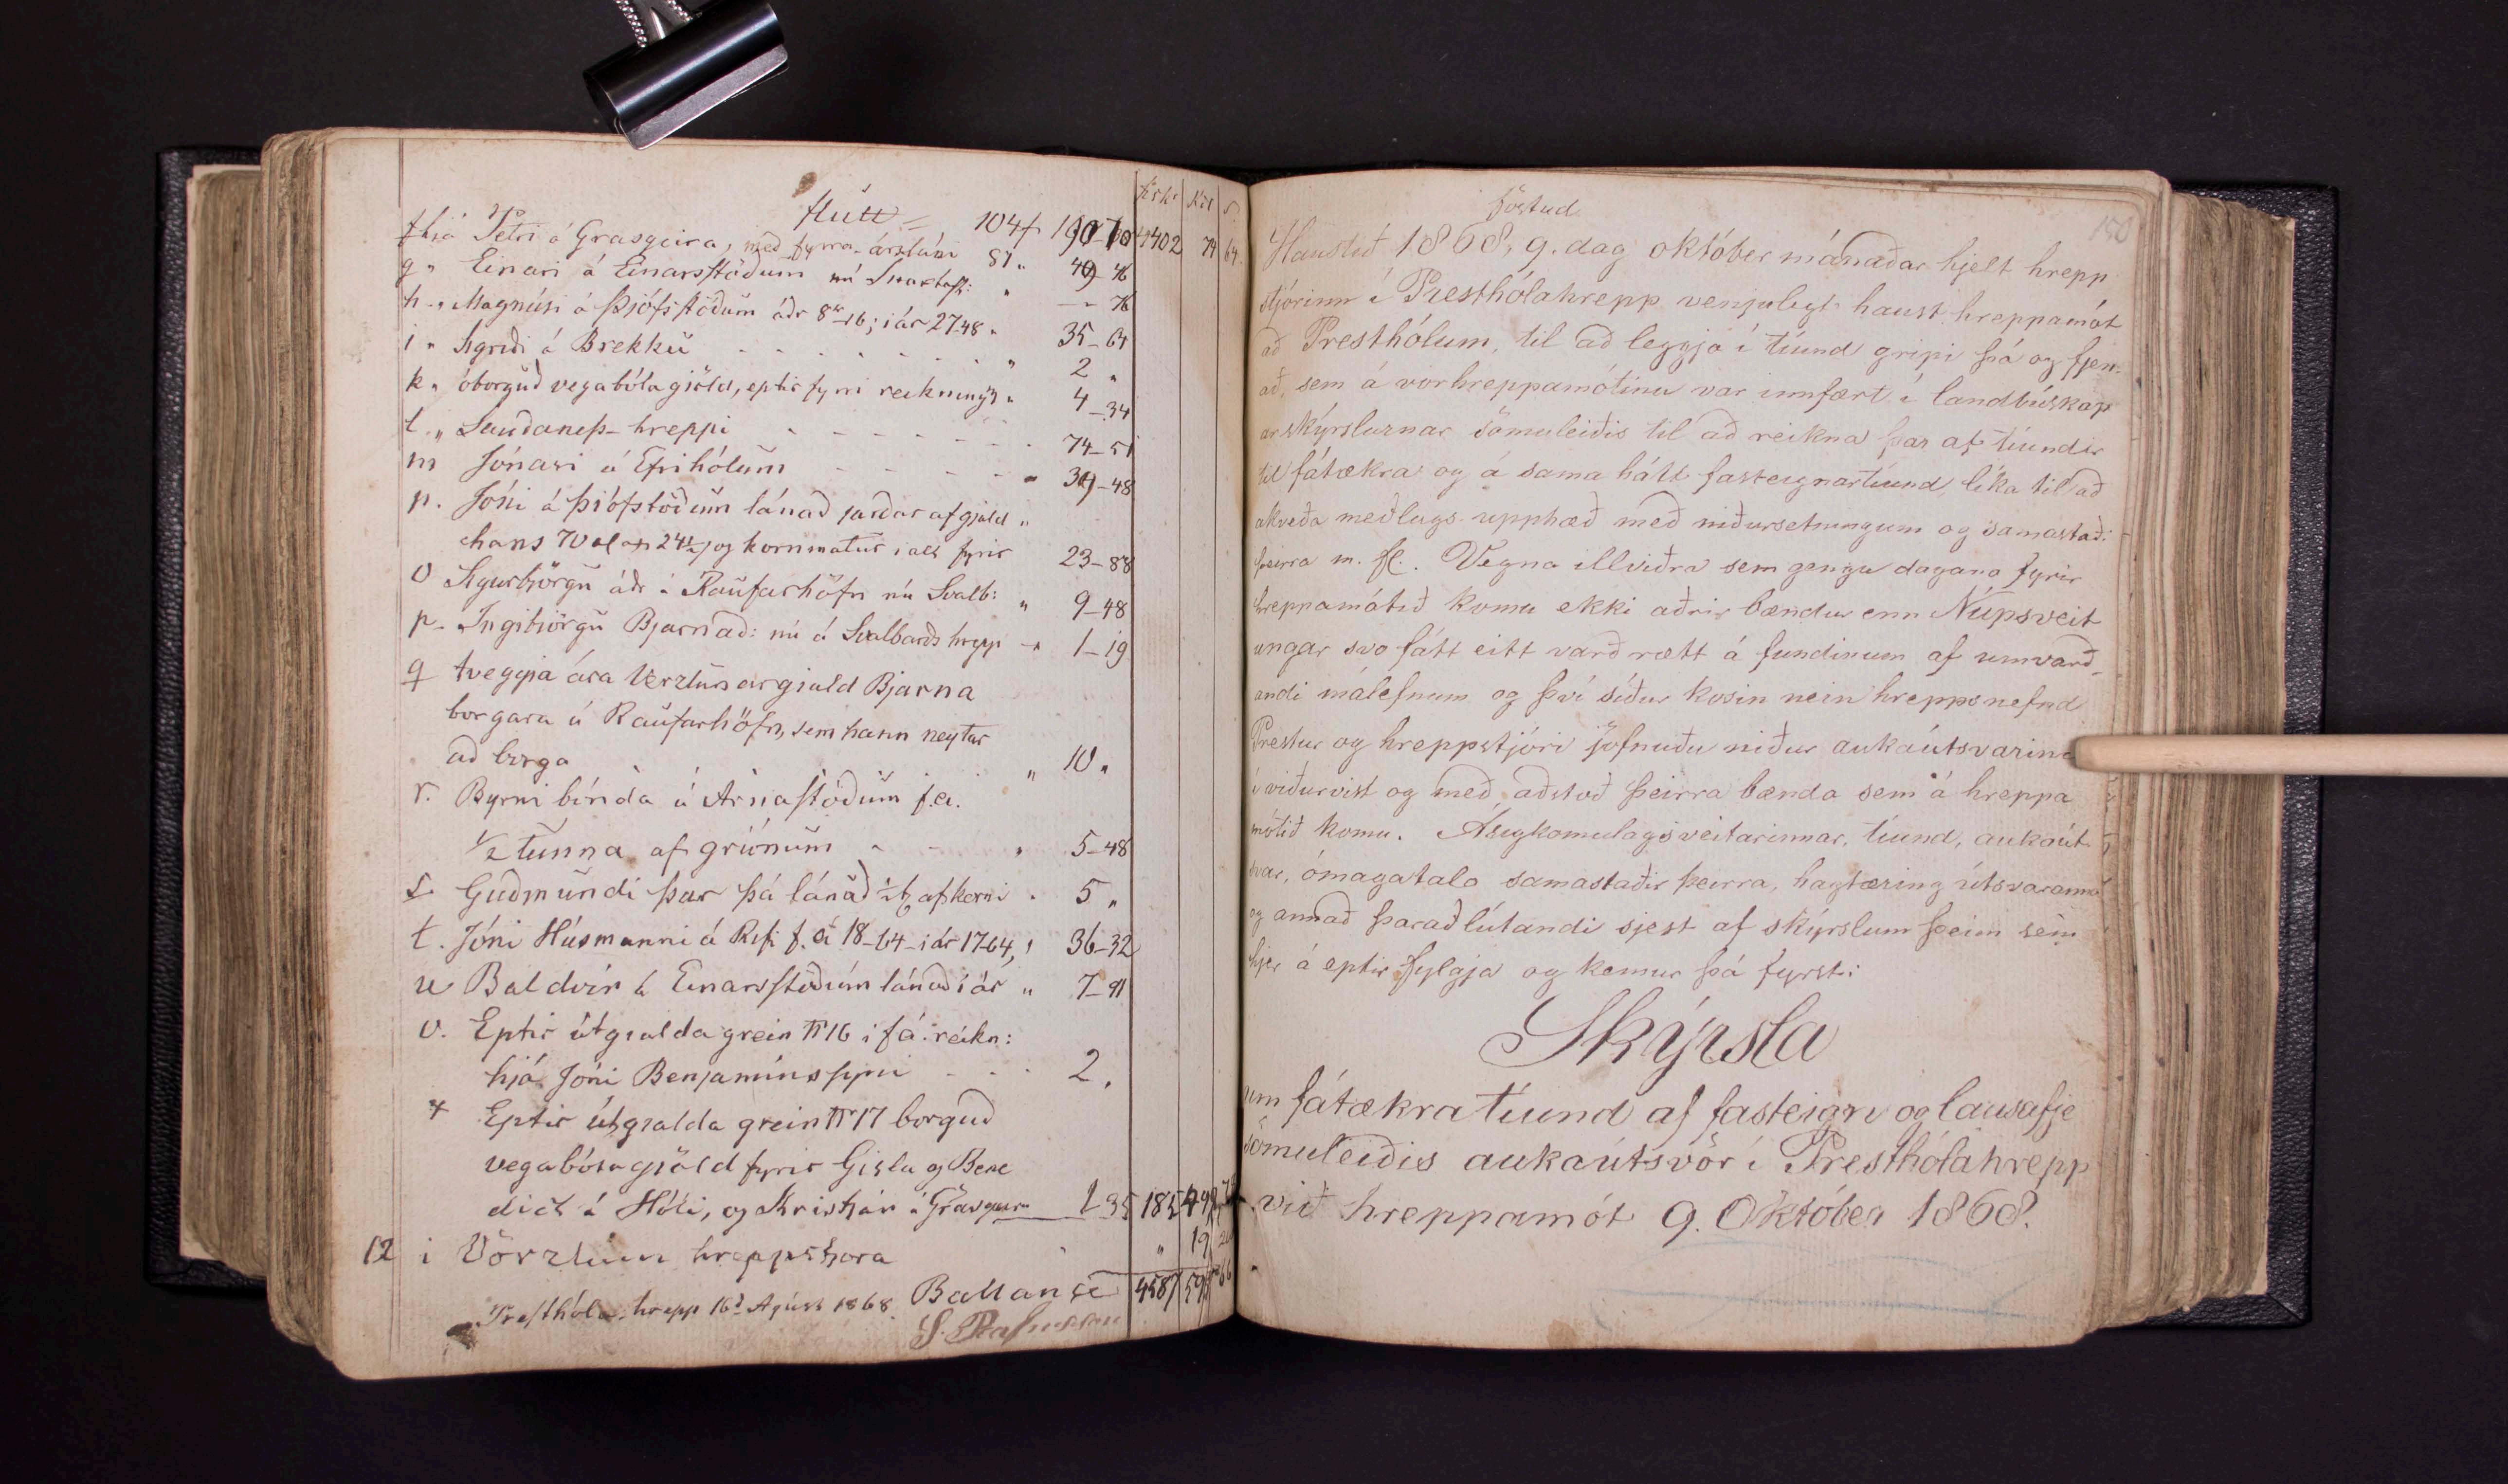 fiskr rdl s.
flutt = 104f 190-70 4402 74 64
f hjá Petri á Grasgeira, með fyrra árs láni 81 „
g „ Einari á Einarsstöðum nú „ 49-46
h „ Magnúsi á Þjófsstöðum áðr 8rd-16; i ár 27-48 „ 35-64
i „ Sigriði á Brekku „ 2 „
k „ óborguð vegabóta gjöld, eptir fyrri reikningi „ 4-34
l „ Sauðaness-hreppi 74-51
m Jónasi á Efrihólum 39-48
n. Jóni á Þjófstöðum lánað jarðar afgjald „
hans 70 al og kornmatur i alt fyrir 23-88
o Sigurbjörgu áðr á Raufarhöfn nú Svalb: „ 9-48
p. Ingibjörgu Bjarnad: nú á Svalbarðshrepp 1-19
q tveggja ára Verzlunargjald Bjarna
borgara á Raufarhöfn, sem hann neytar
að borga „ 10 „
r. Byrni bónda á Arnastöðum f. a.
1/2 tunna af grónum „ 5-48
s. Guðmundi þar þá lánað ½ t af korni 5 „
t. Jóni Húsmanni á Rifi f. á 18-64 i ár 17-64, 36-32
u Baldvin á Einarsstöðúm lánað í ár „ 7-91
v. Eptir útgjalda grein No 16 i fá. reikn:
hjá Jóni Benjaminssyni 2 „
x Eptir útgjalda grein No 17 borguð
vegabóta gjöld fyrir Gisla og Bene
dict á Hóli, og Kristján á Grasgeira 1 35 185
12 i Vörzlum hreppstjora „ 19
Ballance 4587
Presthóla-hrepp 16d Agúst 1868.
150
föstud
Haustið 1868, 9. dag október mánaðar hjelt hrepp
stjórinn í Presthólahrepp venjulegt haust hreppamót
að Presthólum, til að leggja í tíund gripi þá og fjen-
að, sem á vorhreppamótinu var innfært í landbúskap
arskýrslurnar sömuleiðis til að reikna þar af tíundir
til fátækra og á sama hátt fasteignartíund, líka til að
akveða meðlags-upphæð með niðursetningum og samastaði
þeirra m. fl. Vegna illviðra sem gengu dagana fyrir
hreppamótið komu ekki aðrir bændur enn Núpsveit
ungar svo fátt eitt varð rætt á fundinum af umvarð-
andi málefnum og því síður kosin nein hreppsnefnd
Prestur og hreppstjóri jöfnuðu niður aukaútsvarinu
í viðurvist og með aðstoð þeirra bænda sem á hreppa
mótið komu. Ásigkomulag sveitarinnar, tíund, aukaút
svar, ómagatala samastaðir þeirra, hagtæring útsvaranna
og annað þaraðlútandi sjest af skýrslum þeim sem
hjer á eptir fylgja og kemur þá fyrst:
Skýrsla
um fátækratíund af fasteign og lausafje
sömuleiðis aukaútsvör í Presthólahrepp
við hreppamót 9. Október 1868.